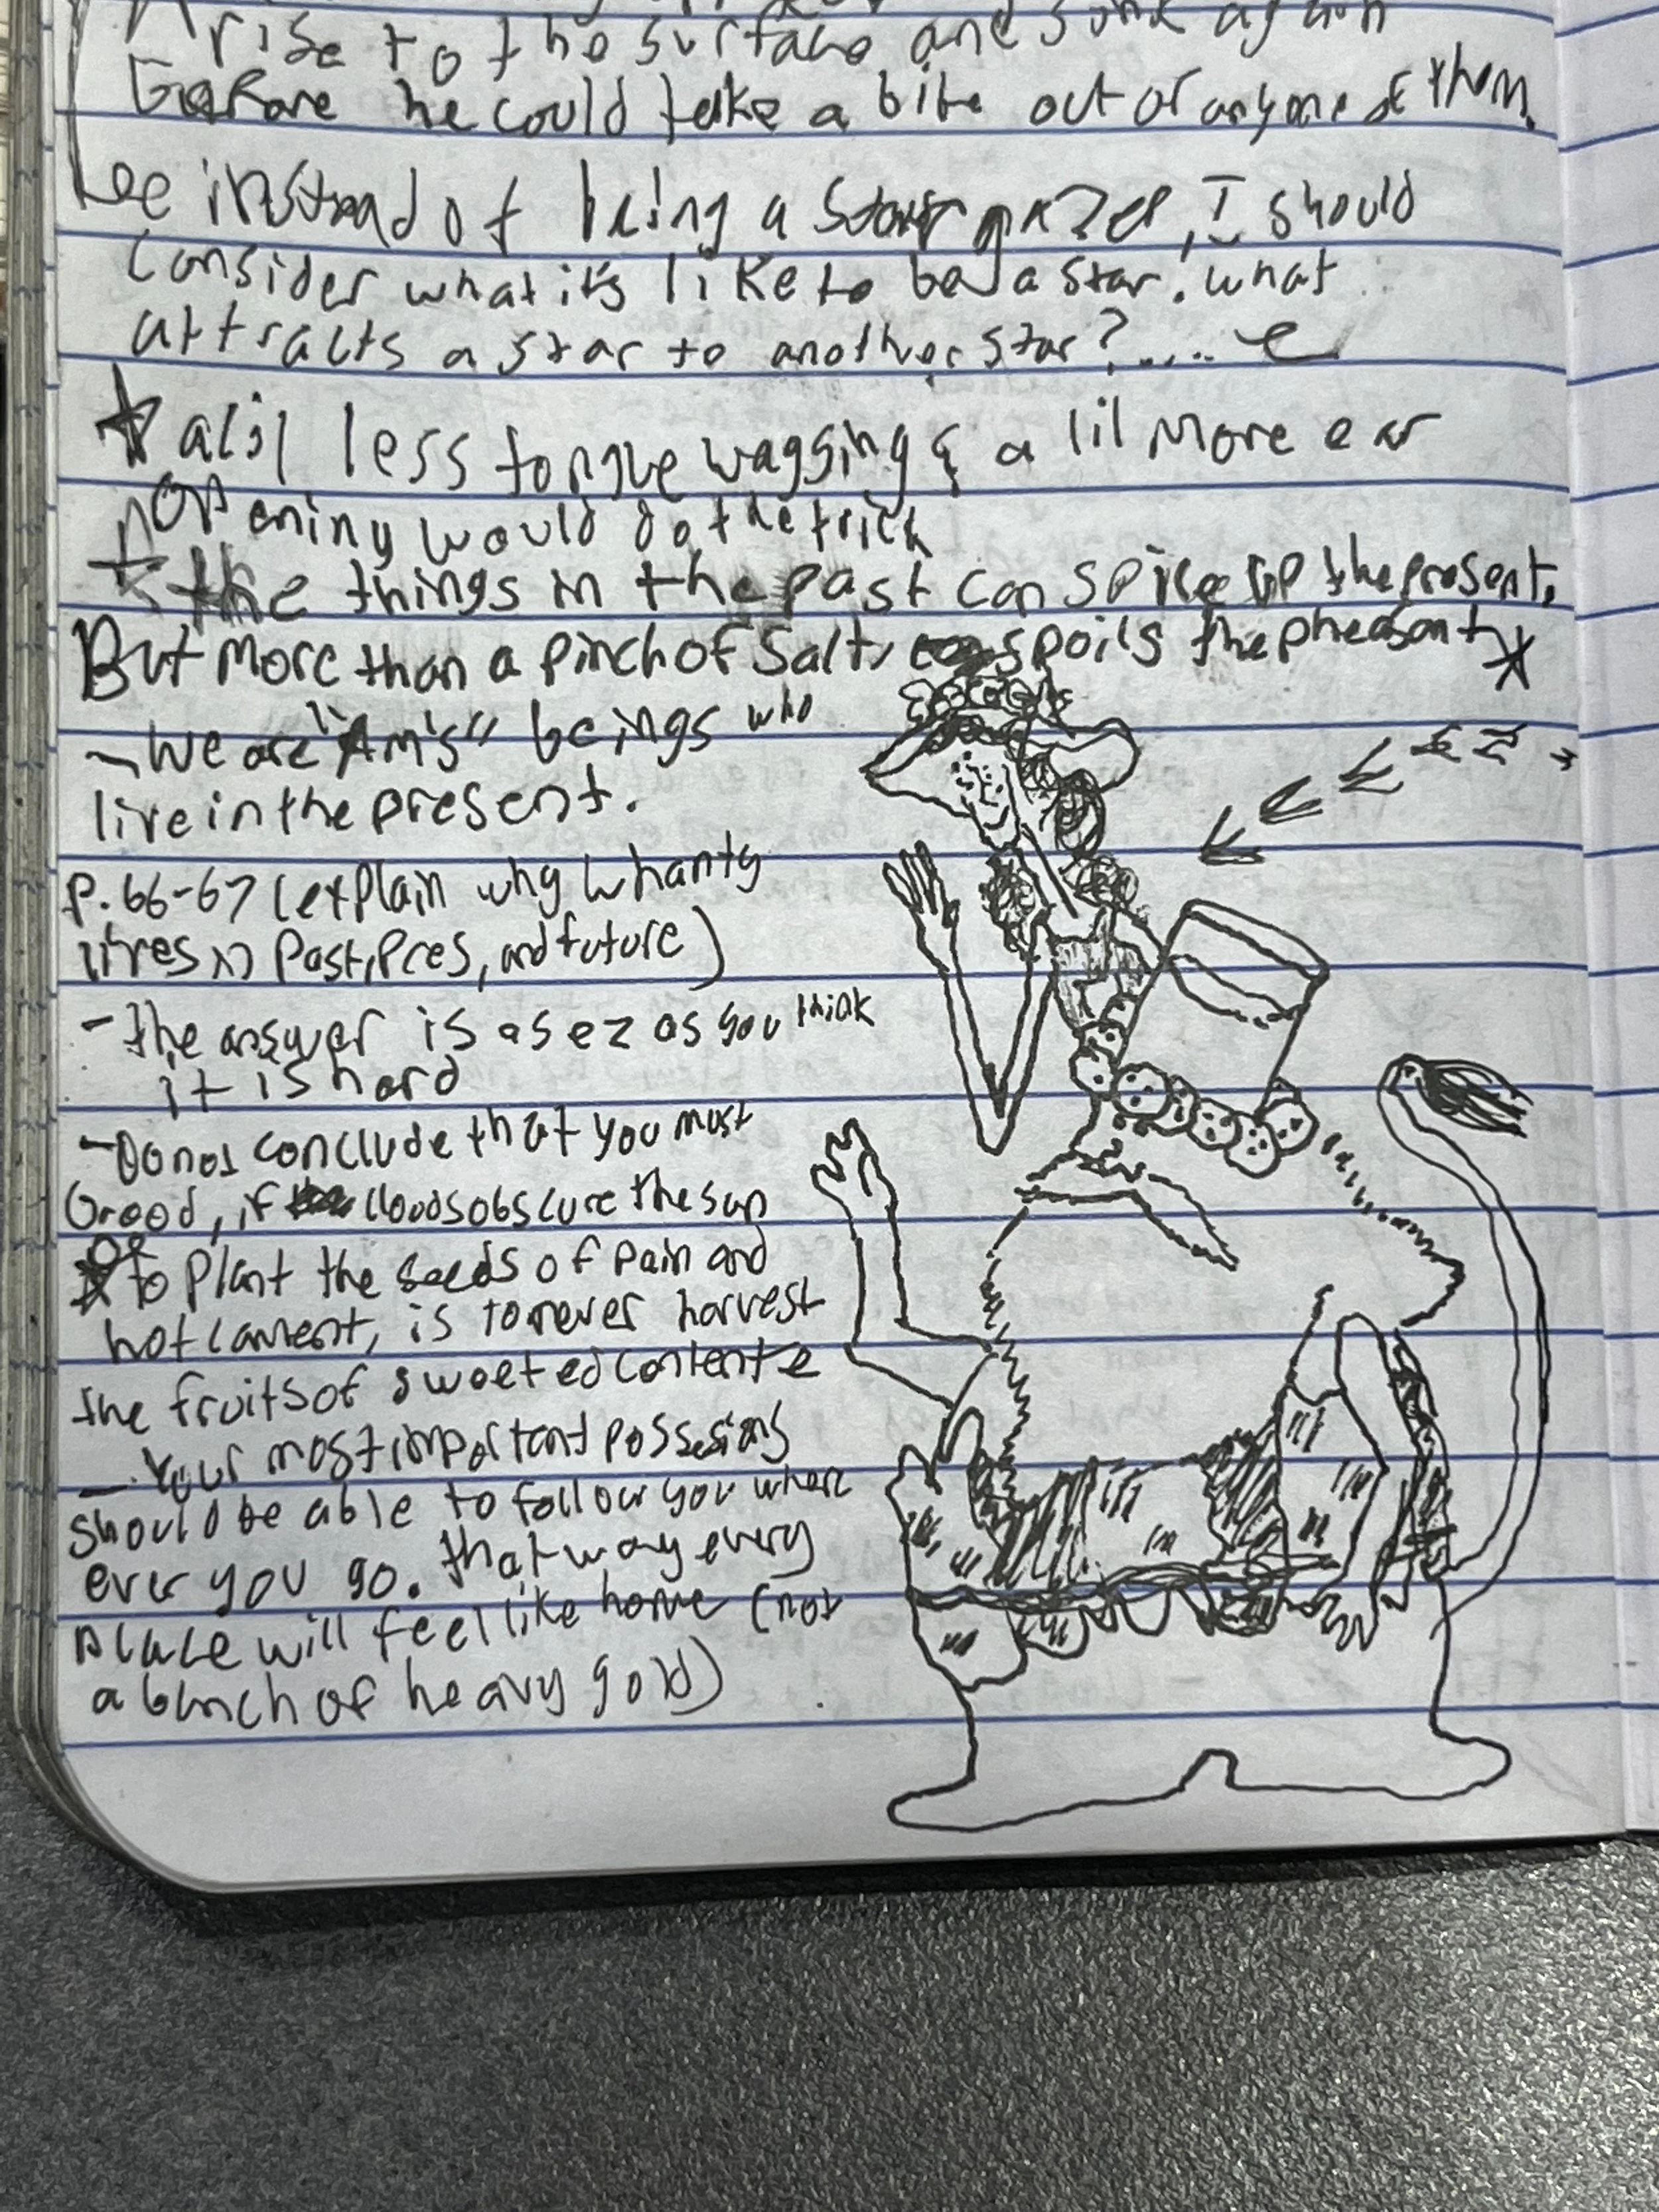 rise to the surface and sink again
Before he could take a bite out of anyone of them.
instead of being a star gazer, I should
consider what it's like to be a star. what
attracts a star to another star?.....
a lil less tongue wagging & a lil More ear
opening would do the trick
the things in the past can spice up the present,
But more than a pinch of salt, spoils the pheasant
- We are "Am's" beings who
live in the present.
p. 66-67 (explain why whanty
lives in Past, Pres, and future)
- the answer is as ez as you think
it is hard
- Do not conclude that you must
brood, if clouds obscure the sun
to plant the seeds of pain and
hot lament, is to never harvest
the fruits of sweeted contente
- Your most important possesions
should be able to follow you where
ever you go. that way every
place will feel like home (not
a bunch of heavy gold)